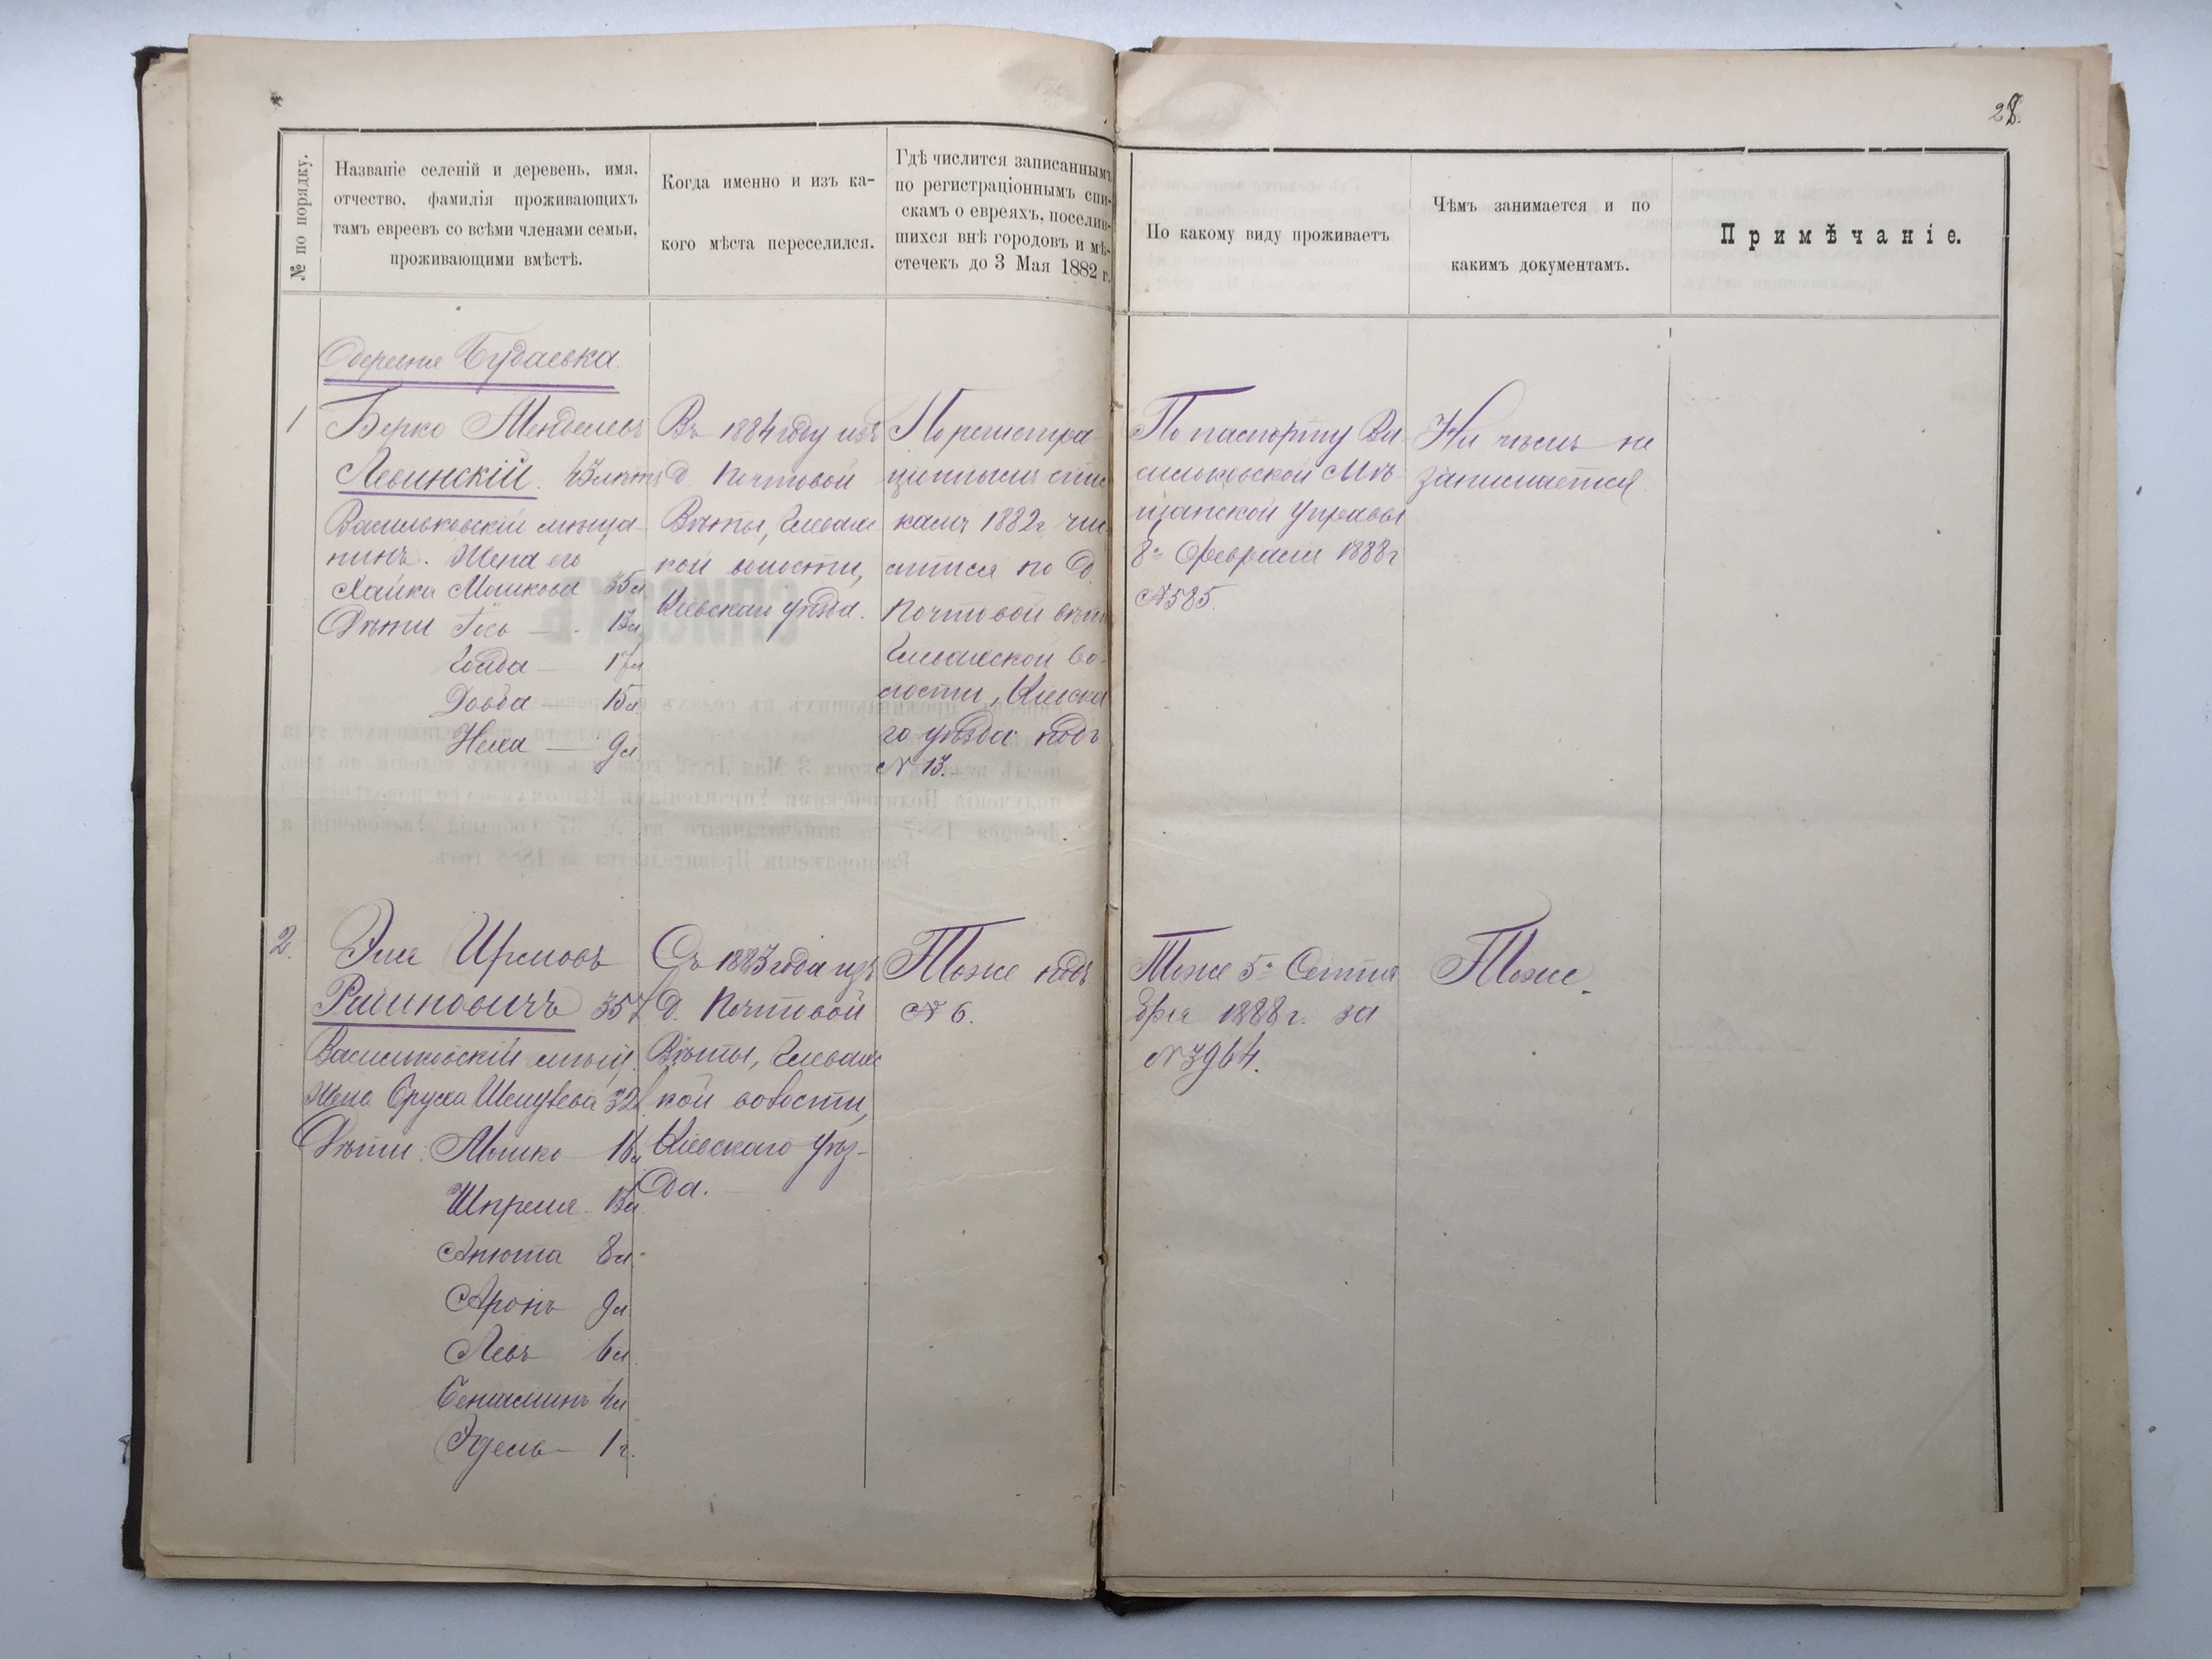 28.
№ по порядку.
Названіе селеній и деревень, имя,
отчество, фамилія проживающихъ
тамъ евреевъ со всѣми членами семьи,
проживающими вмѣстѣ.
Когда именно и изъ ка-
кого мѣста переселился.
Гдѣ числится записаннымъ
по регистраціоннымъ спи-
скамъ о евреяхъ, поселив-
шихся внѣ городовъ и мѣ-
стечекъ до 3 Мая 1882 г.
По какому виду проживаетъ
Чѣмъ занимается и по
какимъ документамъ.
Примѣчаніе.
Деревня Будаевка.
1
Берко Менделевъ
Левинскій. 43 лѣтъ
Васильковскій мѣща-
нинъ. Жена его
Хайка Мошкова 35 л
Дѣти Гось — 13 л
Голда — 17 л
Довба — 15 л
Неха — 9 л
Въ 1884 году изъ
д. Почтовой
Вѣты, Глевахс
кой волости,
Кіевскаго уѣзда.
По регистра-
ціоннымъ спис
камъ 1882 г чис
лится по д.
Почтовой вѣтѣ
Глевахской во-
лости, Кіевска
го уѣзда подъ
№ 13.
По паспорту Ва-
сильковской Мѣ-
щанской Управы
8го Февраля 1888 г
№ 585.
Ни чѣмъ не
занимается
2.
Эля Ицковъ
35 л
Васильковскій мѣщ.
Жена Срука 32 л.
Дѣти: Мошко — 16 л
13 л.
Анюта 8 л.
Аронъ 9 л
Левъ 6 л.
Беніаминъ 4 л
1 г.
Съ 1883 года изъ
д. Почтовой
Вѣты, Глевахс
кой волости,
Кіевскаго уѣз-
да.
Тоже подъ
№ 6.
Тоже 5го Сентя
бря 1888 г. за
№ 3964.
Тоже.